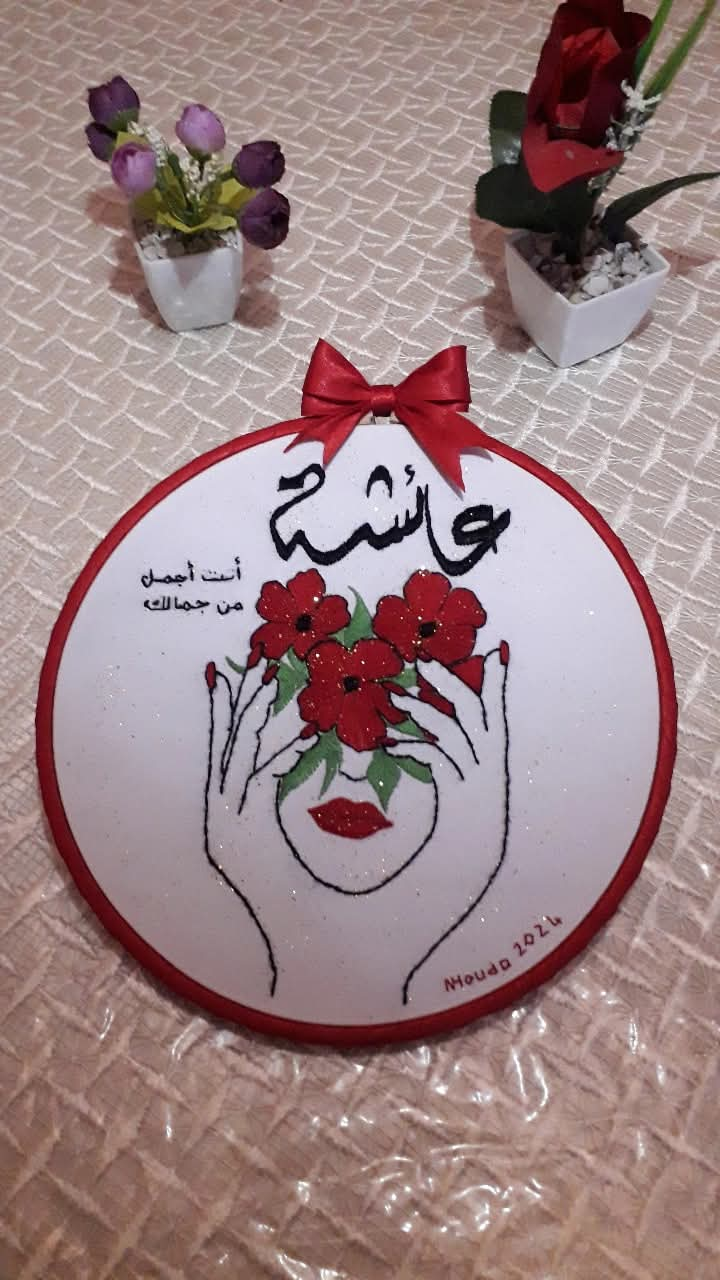 عائشة
أنت أجمل
من جمالك
Nouda 2024